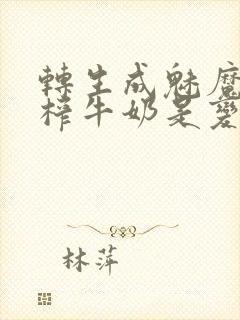 轉生成魅魔
榨牛奶是變
林萍